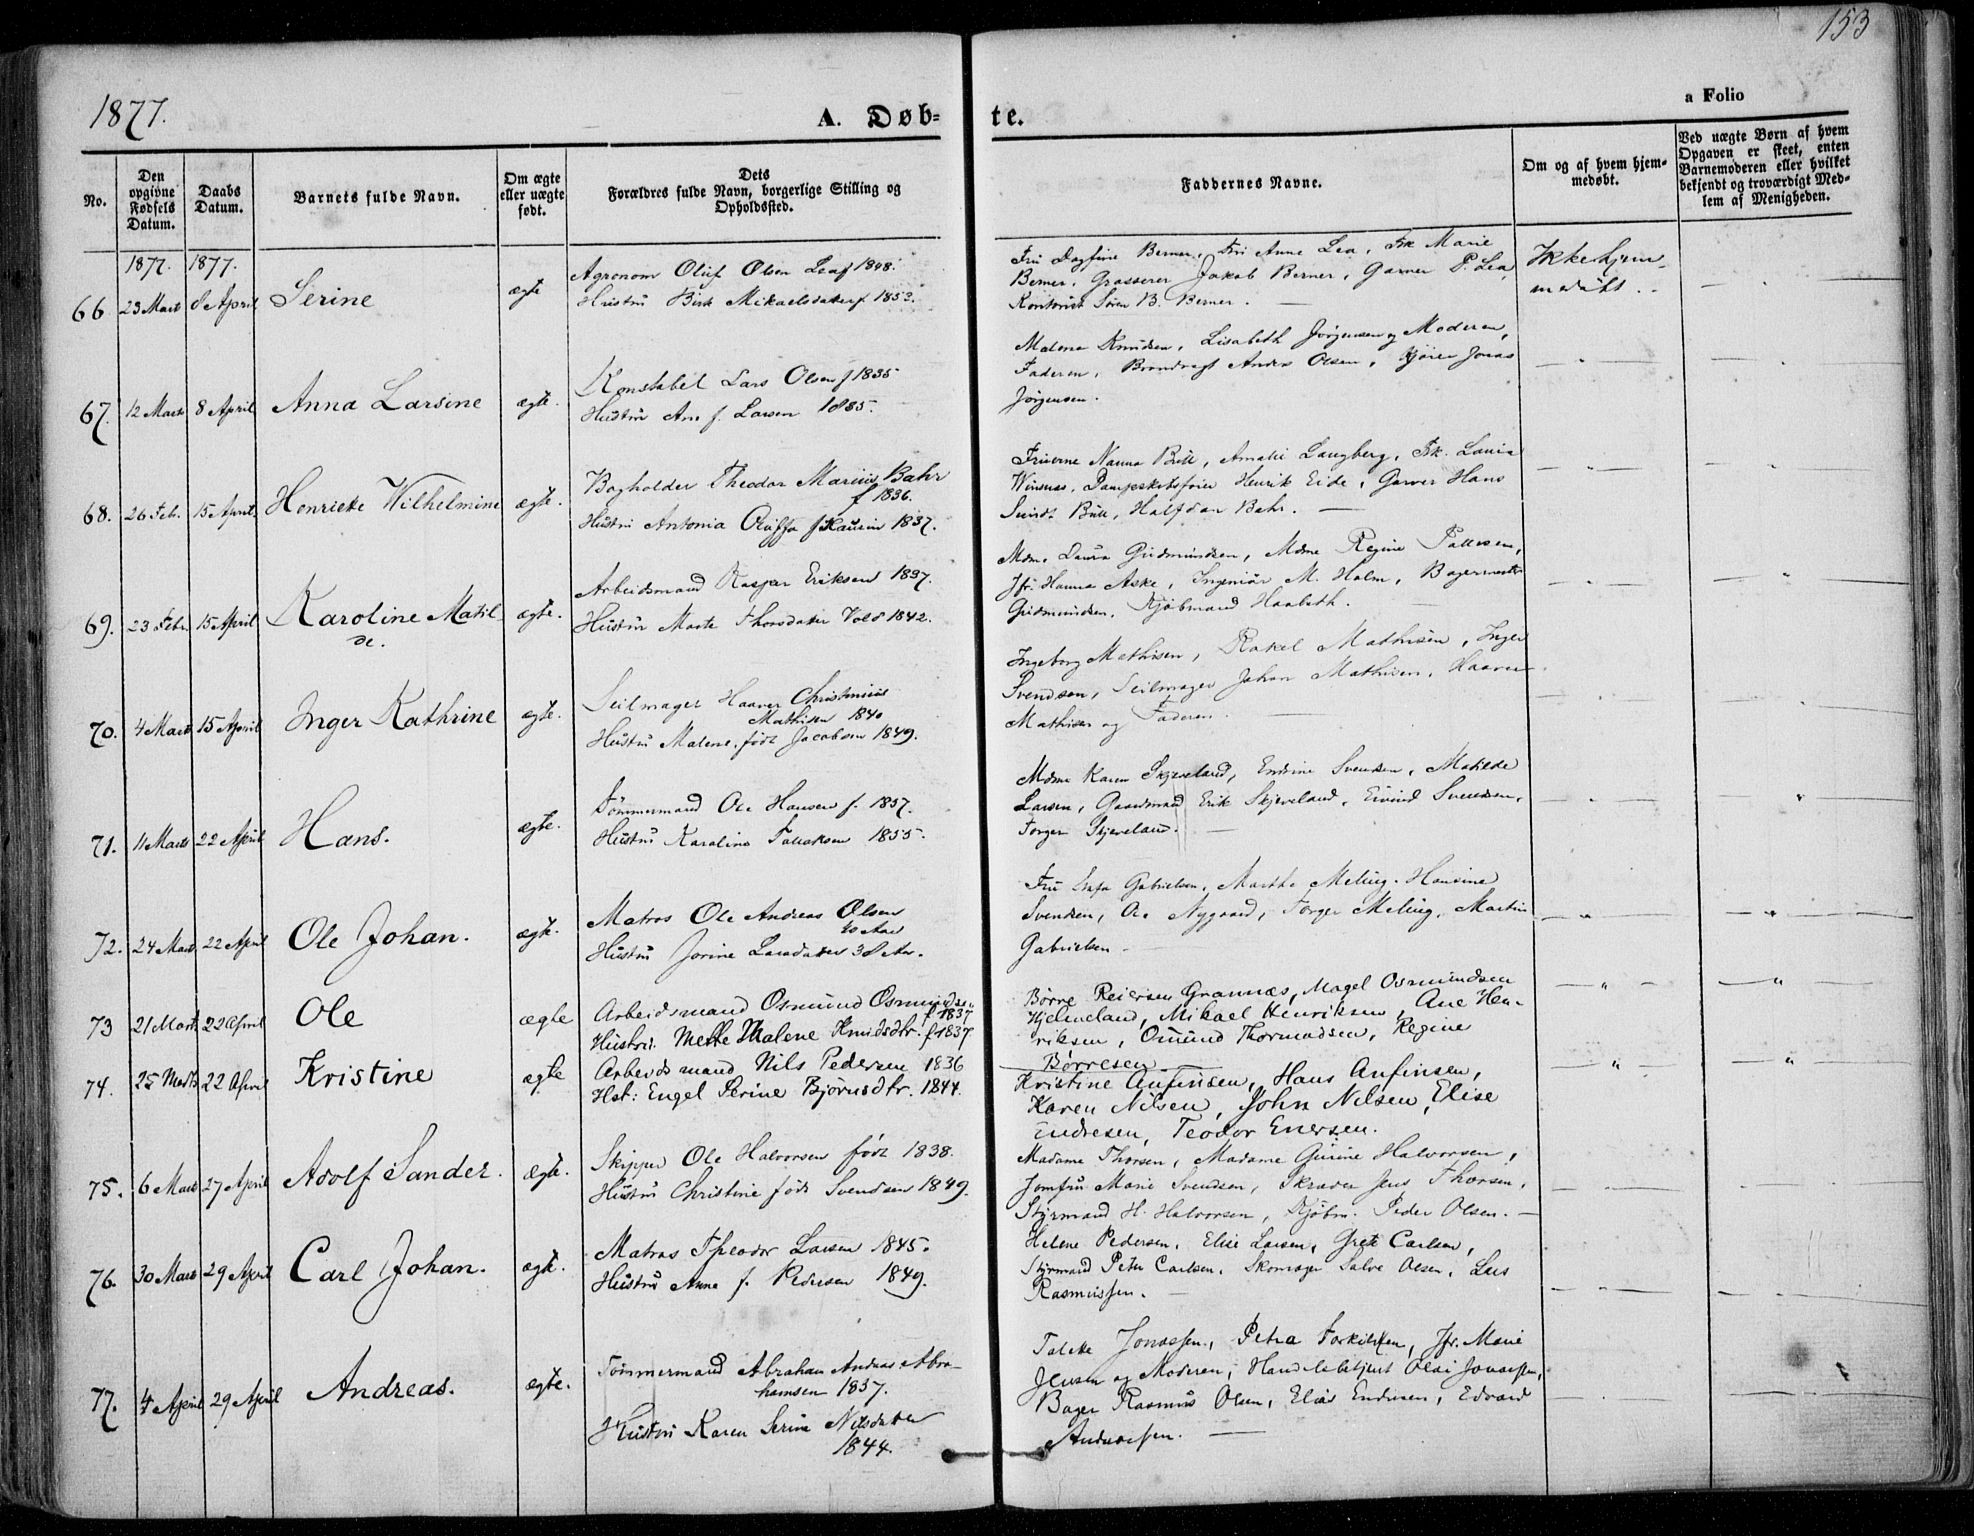 153
1877.
A. Døb-
te.
a Folio
No.
Den opgivne Fødsels Datum.
Daabs Datum.
Barnets fulde Navn.
Om ægte eller uægte født.
Dets Forældres fulde Navn, borgerlige Stilling og Opholdssted.
Faddernes Navne.
Om og af hvem hjemmedøbt.
Ved uægte Børn af hvem Opgaven er skeet, enten Barnemoderen eller hvilket bekjendt og troværdigt Medlem af Menigheden.
1877. 1877.
66 23 Marts 8 April Serine ægte
Agronom Oluf Olsen Lea f 1848.
Hustru Mikaelsdatter f 1852.
Fru Dagfine Berner, Fru Anne Lea, Frk Marie
Berner, Grosserer Jakob Berner, Garver P. Lea,
Kontorist Søren B. Berner.
Ikke hjem-
medøbt.
67. 12 Marts 8 April Anna Larsine ægte.
Konstabel Lars Olsen f 1835
Hustru Ane f. Larsen 1835.
Malene Knudsen, Lisabeth Jørgensen og Moderen,
Faderen, Brandvagt Anders Olsen, Jonas
Jørgensen.
68. 26 Feb. 15 April Henrieke Wilhelmine ægte.
Bogholder Theodor Marius Bahr
f 1836.
Hustru Antonia Oluffa f 1837.
Fruerne Nanna Bull, Amalie Langberg, Frk. Laura
Dampskibsfører Henrik Eide, Garver Hans
Bull, Halfdan Bahr.
69. 23 Febr. 15 April Karoline Matil-
de. ægte.
Arbeidsmand Kasper Eriksen 1837.
Hustru Marte Thorsdatter Vold 1842.
Mdm. Laura Gudmundsen, Mdme Regine Pallesen,
Jfr. Hanna Aske, Ingeniør M. Holm, Bagermester
Gudmundsen, Kjøbmand Haabeth.
70. 4 Marts 15 April Inger Kathrine ægte.
Seilmager Haaver Christinius
Mathisen 1840
Hustru Malene, født Jacobsen 1849.
Ingeborg Mathisen, Rakel Mathisen, Inger
Svendsen, Seilmager Johan Mathisen, Haaver
Mathisen og Faderen.
71. 11 Marts 22 April Hans. ægte.
Tømmermand Ole Hansen f. 1857.
Hustru Karoline Tallaksen 1855.
Mdme Karen Skjeveland, Endrine Svendsen, Matilde
Larsen, Gaardmand Erik Skjeveland, Eivind Svendsen,
Torger Skjeveland.
72. 24 Marts 22 April Ole Johan. ægte.
Matros Ole Andreas Olsen
40 Aar
Hustru Jorine Larsdatter 38 Aar.
Fru Gabrielsen, Marthe Meling, Hansine
Svendsen, Ole Nygaard, Torger Meling, Martin
Gabrielsen
73 21 Marts 22 April Ole ægte
Arbeidsmand Osmund Osmundsen
f 1837
Hustru: Mette Malene Knudsdtr. f 1837
Børre Reiersen Grannæs, Magel Osmundsen
Hjelmeland, Mikael Henriksen, Ane Hen-
riksen, Omund Thormodsen, Regine
Børresen
74. 25 Marts 22 April Kristine ægte
Arbeidsmand Nils Pedersen 1836
Hst: Engel Serine Bjørnsdtr. 1844.
Kristine Anfinsen, Hans Anfinsen,
Karen Nilsen, John Nilsen, Elise
Endresen, Teodor Enersen.
75. 6 Marts 27 April Adolf Sander. Ægte.
Skipper Ole Halvorsen født 1838.
Hustru Christine født Svendsen 1849.
Madame Thorsen, Madame Gurine Halvorsen,
Jomfru Marie Svendsen, Skræder Jens Thorsen,
Styrmand H. Halvorsen, Kjøbm. Peder Olsen.
76. 30 Marts 29 April Carl Johan. ægte.
Matros Theodor Larsen 1845.
Hustru Anna f. Pedersen 1849.
Helene Pedersen, Elise Larsen, Grete Carlsen,
Styrmand Peter Carlsen, Skomager Salve Olsen, Lars
Rasmussen.
77. 4 April 29 April Andreas. ægte.
Tømmermand Abraham Andreas Abra-
hamsen 1837.
Hustru Karen Serine Nilsdatter
1844.
Talette Jonassen, Petra Torkildsen, Jfr. Marie
Jensen og Moderen, Handelsbetjent Olai Jonassen,
Bager Rasmus Olsen, Elias Endresen, Edvard
Andreassen.